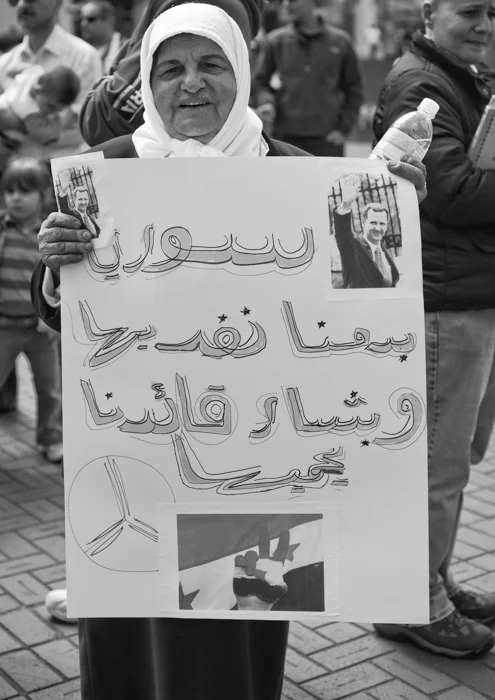 سوريا
بدمنا نفديها
وبشار قائدنا
يحميها